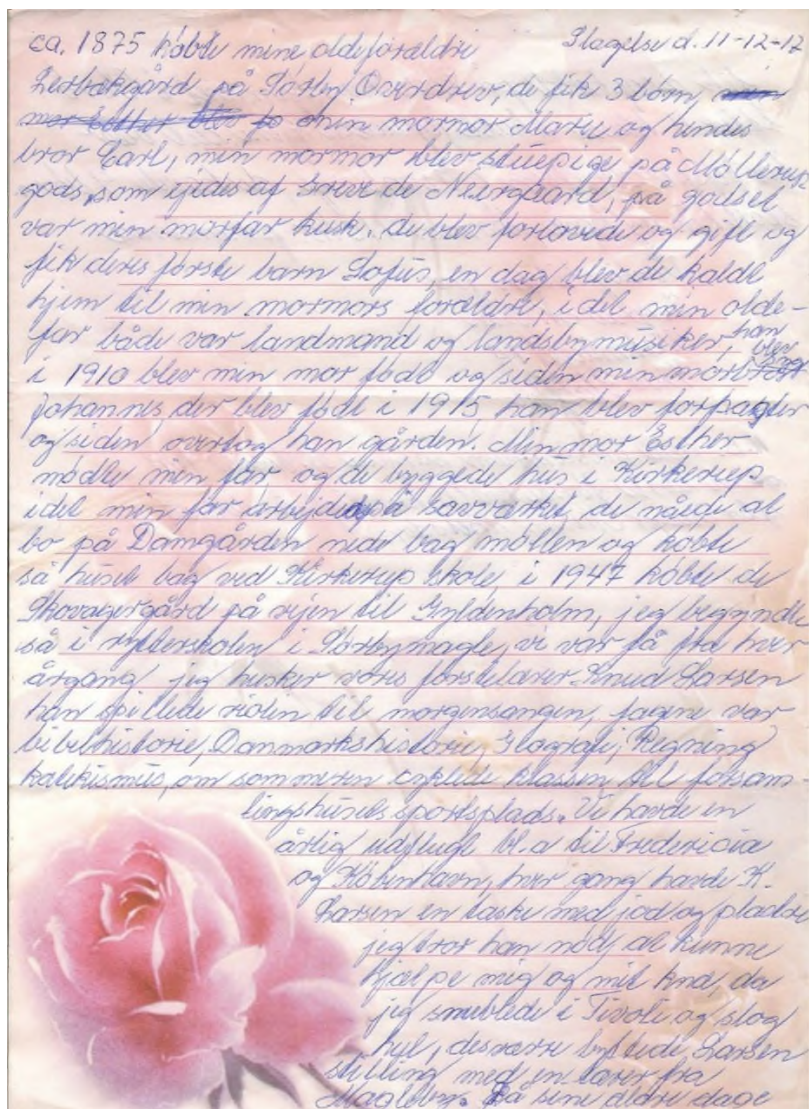 ca. 1875 købte mine oldeforældre Slagelse d. 11-12-12
Lerbakgård på Sørby Overdrev, de fik 3 børn,
min mormor Marie og hendes
bror Carl, min mormor blev stuepige på Møllerup
gods, som ejedes af Greve de Neergaard, på godset
var min morfar kusk. de blev forlovede og gift og
fik deres første barn Sofus, en dag blev de kaldt
hjem til min mormors forældre, idet min olde-
far både var landmand og landsbymusiker, han
blev
i 1910 blev min mor født og siden min morbror
Johannes, der blev født i 1915, han blev forpagter
og siden overtog han gården. Min mor Esther
mødte min far og de byggede hus i Kirkerup
idet min far arbejdede på savværket de nåede at
bo på Damgården nede bag møllen og købte
så huset bag ved Kirkerup Skole, i 1947 købte de
Skovagergård på vejen til Gyldenholm, jeg begyndte
så i rytterskolen i Sørbymagle, vi var få fra hver
årgang, jeg husker vores førstelærer Knud Larsen
han spillede violin til morgensangen, fagene var
bibelhistorie, Danmarkshistorie, Geografi, Regning
katekismus, om sommeren cyklede klassen til forsam-
lingshusets sportsplads. Vi havde en
årlig udflugt bl.a til Fredericia
og København, hver gang havde K.
Larsen en taske med jod og plastre
jeg tror han nød, at kunne
hjælpe mig og mit knæ, da
jeg snublede i Tivoli og slog
hul, desværre byttede Larsen
stilling med en lærer fra
Magleby. På sine ældre dage